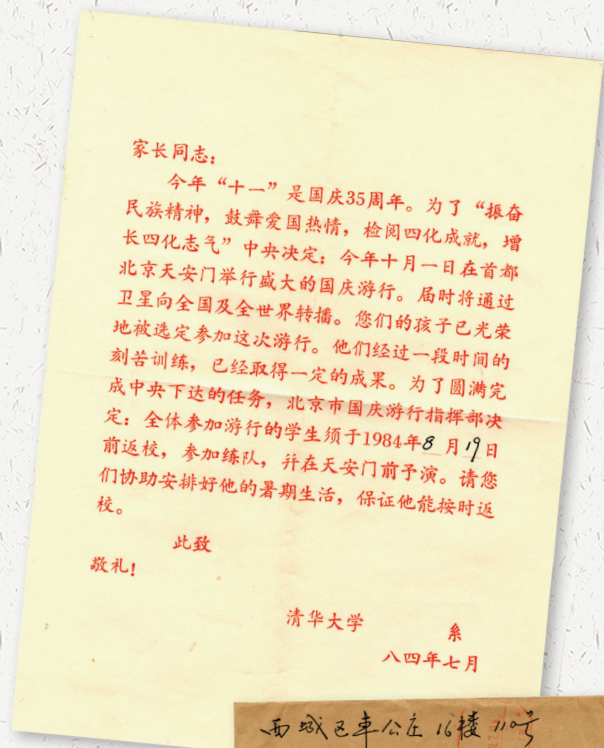 家长同志：
今年“十一”是国庆35周年。为了“振奋
民族精神，鼓舞爱国热情，检阅四化成就，增
长四化志气”中央决定：今年十月一日在首都
北京天安门举行盛大的国庆游行。届时将通过
卫星向全国及全世界转播。您们的孩子已光荣
地被选定参加这次游行。他们经过一段时间的
刻苦训练，已经取得一定的成果。为了圆满完
成中央下达的任务，北京市国庆游行指挥部决
定：全体参加游行的学生须于1984年8月19日
前返校，参加练队，并在天安门前予演。请您
们协助安排好他的暑期生活，保证他能按时返
校。
此致
敬礼！
清华大学 系
八四年七月
西城区车公庄16楼110号